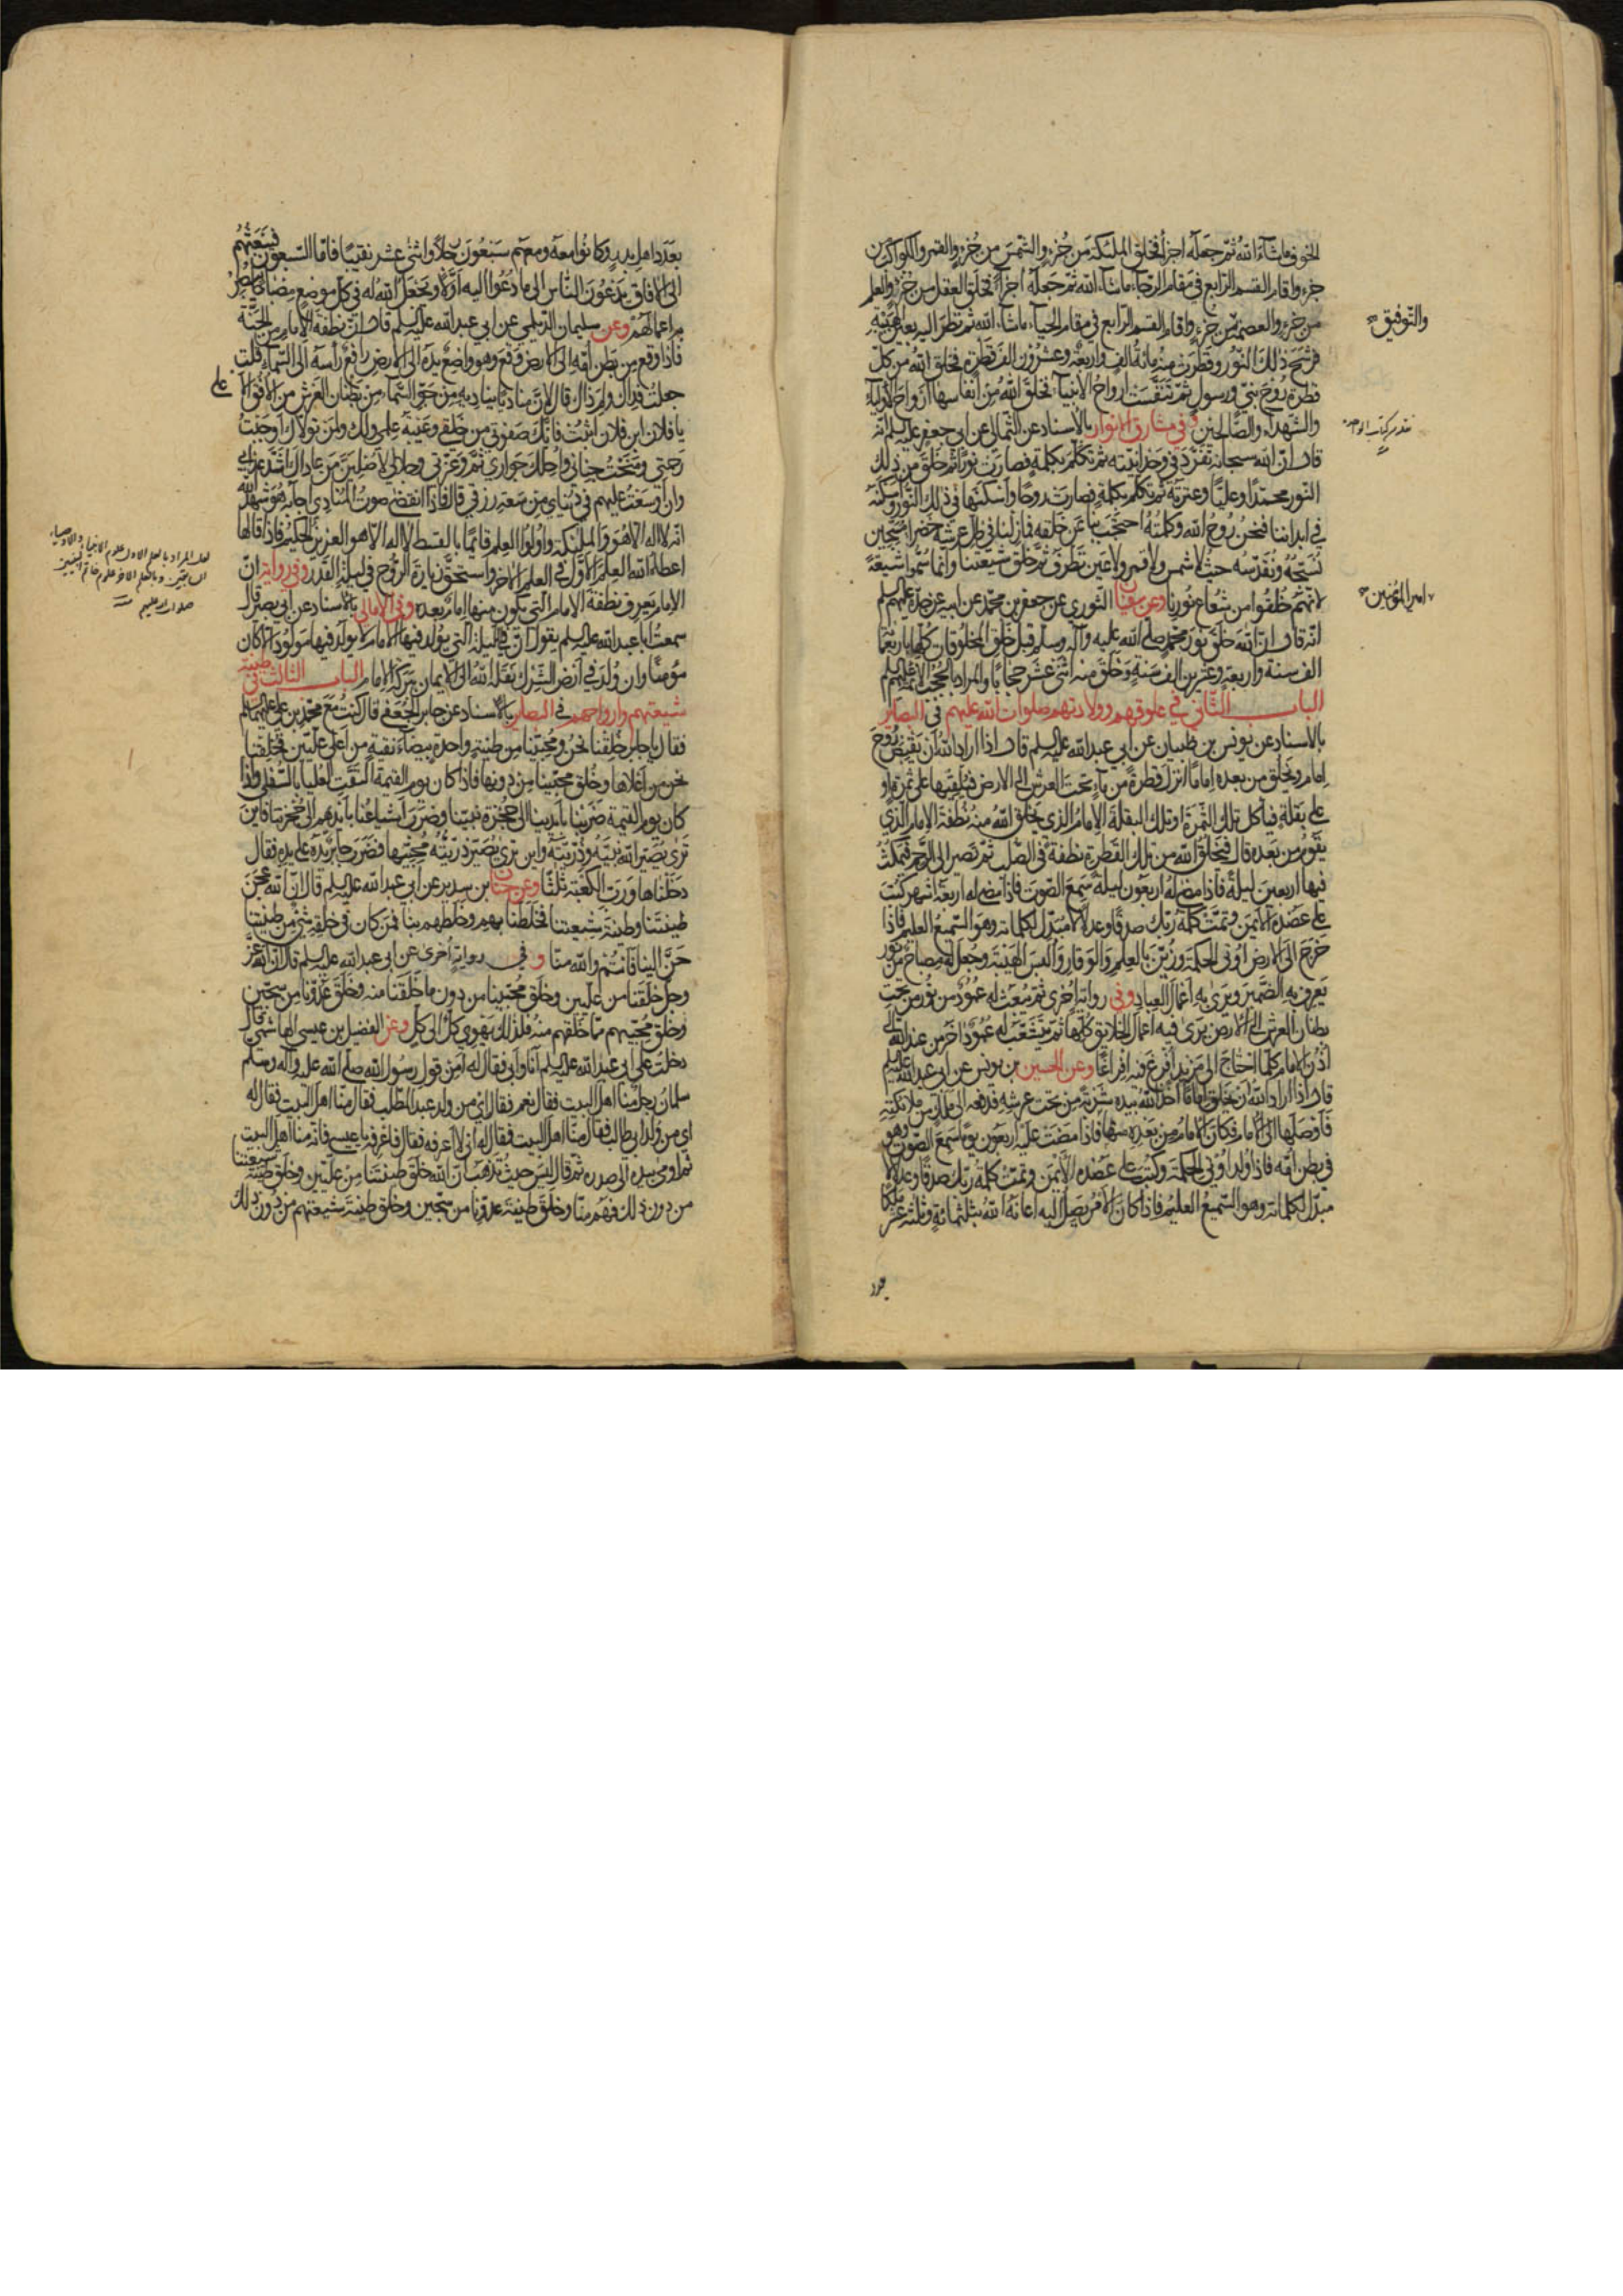 الخوف ماشآء الله ثمّ جعله اجزآء فخلق الملئكة من جُزءٍ والشّمس من جُزءٍ والقمر والكواكب من
جزء واقام القسم الرّابع في مقام الرّجآء ماشآء الله ثمّ جعله اجزآء فخلق العقل من جُزءٍ والعلم
من جزءٍ والعصمة من جزءٍ واقام القسم الرّابع في مقام الحيآء ماشآء الله ثمّ نظر اليه بعين الهيبة
والتّوفيق
فرشح ذلك النّور وقطرت منه مائة الف واربعة وعشرون الف قطرة فخلق الله من كلّ
قطرة روح نبيّ ورسول ثمّ تنفّست ارواح الأنبيآء فخلق الله من انفاسها ارواح الأوليآء
والشّهدآء والصّالحين وفي مشارق الانوار بالأسناد عن الثّمالي عن ابي جعفر عليه السلم انّه
قال انّ الله سبحانه تفرّد في وحدانيّته ثمّ تكلّم بكلمة فصارت نورًا ثمّ خلق من ذلك
النّور محمّدًا وعليًّا وعترته ثمّ تكلّم بكلمة فصارت روحًا واسكنها في ذلك النّور واسكنه
في ابداننا فنحن روح الله وكلمته احتجب بنا عن خلقه فما زلنا في ظلّ عرشه خضرآء مسبّحين
نسبّحه ونقدّسه حيث لا شمس ولا قمر ولا عين تطرف ثمّ خلق شيعتنا وانّما سمّوا شيعة
لانّهم خلقوا من شعاع نورنا وعن سفيان الثوري عن جعفر بن محمّد عن ابيه عن جدّه عليهم السلم
امير المؤمنين
انّه قال انّ الله خلق نور محمّد صلّى الله عليه وآله وسلم قبل خلق المخلوقات كلّها باربعمائة
الف سنة واربعة وعشرين الف سنة وخلق منه اثنى عشر حجابًا والمراد بالحجب الائمّة عليهم السلم
الباب الثّاني في علوقهم وولادتهم صلوات الله عليهم في البصاير
بالاسناد عن يونس بن ظبيان عن ابي عبد الله عليه السلم قال اذا اراد الله ان يقبض روح
امام ويخلق من بعده امامًا انزل قطرة من مآء تحت العرش الى الارض فيلقيها على ثمرة او
على بقلة فيأكل تلك الثّمرة او تلك البقلة الإمام الذي يخلق الله منه نطفة الإمام الذي
يقوم من بعده قال فيخلق الله من تلك القطرة نطفة في الصّلب ثمّ تصير الى الرّحم فيمكث
فيها اربعين ليلة فاذا مضى له اربعون ليلة سمع الصّوت فاذا مضى له اربعة اشهر كتب
على عضده الأيمن وتمّت كلمة ربّك صدقًا وعدلا لا مبدّل لكلماته وهو السّميع العليم فاذا
خرج الى الارض اوتي الحكمة وزيّن بالعلم والوقار والبس الهيبة وجعل له مصباح من نور
يعرف به الضّمير ويرى به اعمال العباد وفي رواية اخرى ثمّ يبعث له عمود من نور من تحت
بطنان العرش الى الارض يرى فيه اعمال الخلايق كلّها ثمّ يتشعّب له عمود اخر من عند الله الى
اذن الامام كلّما احتاج الى مزيد افرغ فيه افراغًا وعن الحسين بن يونس عن ابي عبد الله عليه السلم
قال اذا اراد الله ان يخلق امامًا اخذ الله بيده شربة من تحت عرشه فدفعه الى ملك من ملائكته
فاوصلها الى الامام فكان الامام من بعده منها فاذا مضت عليه اربعون يومًا سمع الصّوت وهو
في بطن امّه فاذا ولد اوتي الحكمة وكتب على عضده الأيمن وتمّت كلمة ربّك صدقًا وعدلا لا
مبدّل لكلماته وهو السّميع العليم فاذا كان الأمر يصل اليه اعانه الله بثلثمائة وثلثة عشر ملكًا
بعدد
بعدد اهل بدر وكانوا معه ومعهم سبعون رجلًا واثنى عشر نقيبًا فامّا السّبعون فيبعثهم
الى الافاق يدعون النّاس الى ما دعوا اليه اوّلا ويجعل الله له في كلّ موضع مصباحًا يبصر
به اعمالهم وعن سليمان الدّيلمي عن ابي عبد الله عليه السلم قال انّ نطفة الإمام من الجنّة
فاذا وقع من بطن امّه الى الارض وقع وهو واضع يده الى الارض رافع رأسه الى السّمآء قلت
جعلت فداك ولم ذاك قال لانّ مناديًا يناديه من جوّ السّمآء من بطنان العرش من الافق الاعلى
يا فلان ابن فلان اثبت فانّك صفوتي من خلقي وعيبة علمي ولك ولمن تولّاك اوجبت
رحمتي ومنحت جناني واحلّك جواري ثمّ وعزّتي وجلالي لأصلينّ من عاداك اشدّ عذابي
وان اوسعت عليهم في دنياي من سعة رزقي قال فاذا انقضى صوت المنادي اجابه هو شهد الله
انّه لا اله الّا هو والملئكة واولوا العلم قائمًا بالقسط لا اله الّا هو العزيز الحكيم فاذا قالها
لعل المراد بالعلم الاول علوم الانبياء والاوصياء
السابقين وبالعلم الاخر علوم خاتم النبيين
صلوات الله عليهم
اعطاه الله العلم الاوّل والعلم الاخر واستحقّ زيارة الرّوح في ليلة القدر وفي رواية انّ
الإمام يعرف نطفة الامام التي يكون منها امام بعده وفي الامالي بالاسناد عن ابي بصير قال
سمعت ابا عبد الله عليه السلم يقول انّ في الليلة التي يولد فيها الامام لا يولد فيها مولود الّا كان
مؤمنًا وان ولد في ارض الشّرك نقله الله الى الايمان ببركة الإمام الباب الثالث في طينة
شيعتهم وارواحهم في البصاير بالأسناد عن جابر الجعفي قال كنت مع محمّد بن علي عليهما السلم
فقال يا جابر خلقنا نحن ومحبّينا من طينة واحدة بيضآء نقية من اعلى علّيّين فخلقنا
نحن من اعلاها وخلق محبّينا من دونها فاذا كان يوم القيمة التقت العليا بالسّفلى واذا
كان يوم القيمة ضربنا بأيدينا الى حجزة نبيّنا وضرب اشياعنا بأيديهم الى حجزتنا فاين
ترى يصيّر الله نبيّه وذرّيّته واين ترى يصيّر ذرّيّته محبّيها فضرب جابر يده على يده فقال
دخلناها وربّ الكعبة ثلثًا وعن حنان بن سدير عن ابي عبد الله عليه السلم قال انّ الله عجن
طينتنا وطينة شيعتنا فخلطنا بهم وخلطهم بنا فمن كان في خلقه شئ من طينتنا
حنّ الينا فانتم والله منّا وفي رواية اخرى عن ابي عبد الله عليه السلم قال انّ الله عزّ
وجلّ خلقنا من علّيّين وخلق محبّينا من دون ما خلقنا منه وخلق عدوّنا من سجّين
وخلق محبّيهم ممّا خلقهم منه فلذلك يهوي كلّ الى كلّ وعن الفضيل بن عيسى الهاشمي قال
دخلت على ابي عبد الله عليه السلم انا وابي فقال له أمن قول رسول الله صلّى الله عليه وآله وسلم
سلمان رجل منّا اهل البيت فقال نعم فقال اي من ولد عبد المطّلب فقال منّا اهل البيت فقال له
اي من ولد ابي طالب فقال منّا اهل البيت فقال له اني لا اعرفه فقال فاعرفه يا عيسى فانّه منّا اهل البيت
ثمّ اومى بيده الى صدره ثمّ قال ليس حيث تذهب انّ الله خلق طينتنا من علّيّين وخلق طينة شيعتنا
من دون ذلك فهم منّا وخلق طينة عدوّنا من سجّين وخلق طينة شيعتهم من دون ذلك